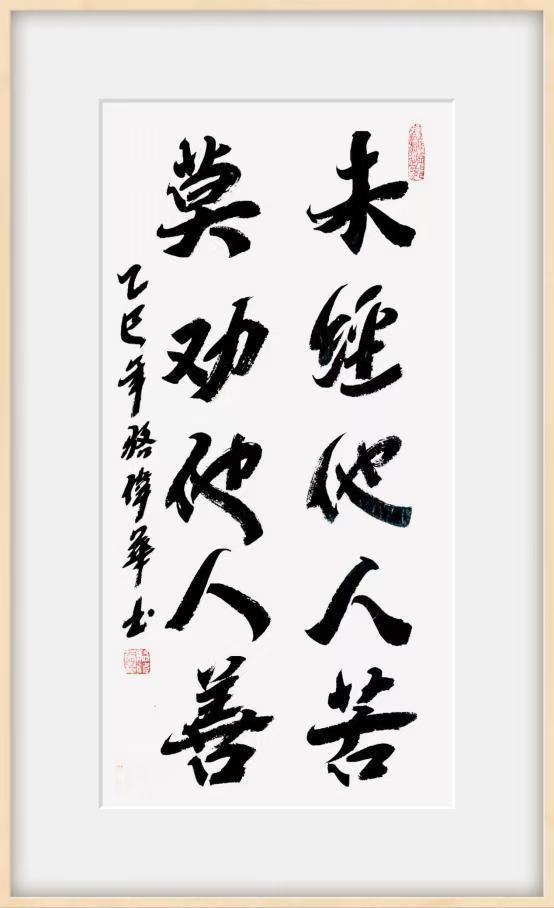 未經他人苦
莫劝他人善
乙巳年骆偉華书